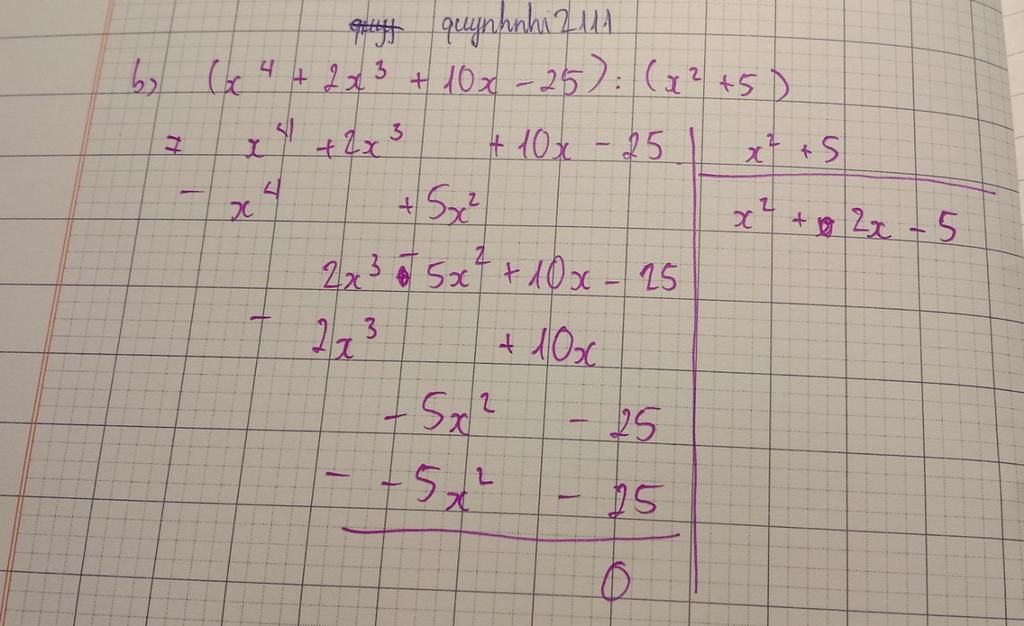 quynhnhi2111
b) (x⁴ + 2x³ + 10x - 25) : (x² + 5)
x⁴ + 2x³ + 10x - 25 | x² + 5
- x⁴ + 5x² | x² + 2x - 5
2x³ - 5x² + 10x - 25
- 2x³ + 10x
- 5x² - 25
- - 5x² - 25
0